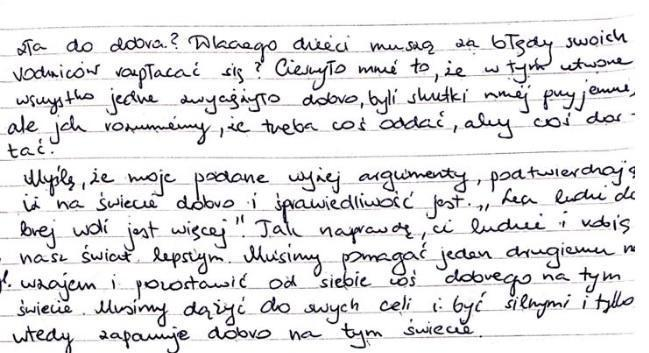 zła do dobra? Dlaczego dzieci muszą za błędy swoich
rodniców rozpłacać się? Cieszyło mnie to, że w tym utworze
wszystko jedne zwyciężyło dobro, byli skutki mniej przyjemne,
ale jak rozumiemy, że treba coś oddać, aby coś dos-
tać.
Myślę, że moje podane wyżej argumenty, podtwierdzają
iż na świecie dobro i sprawiedliwość jest. „Lecz ludzi do
brej woli jest więcej". Tak naprawdę, ci ludzie i robią
nasz świat lepszym. Musimy pomagać jeden drugiemu
wzajem i pozostawić od siebie coś dobrego na tym
świecie. Musimy dążyć do swych celi i być silnymi i tylko
wtedy zapanuje dobro na tym świecie.